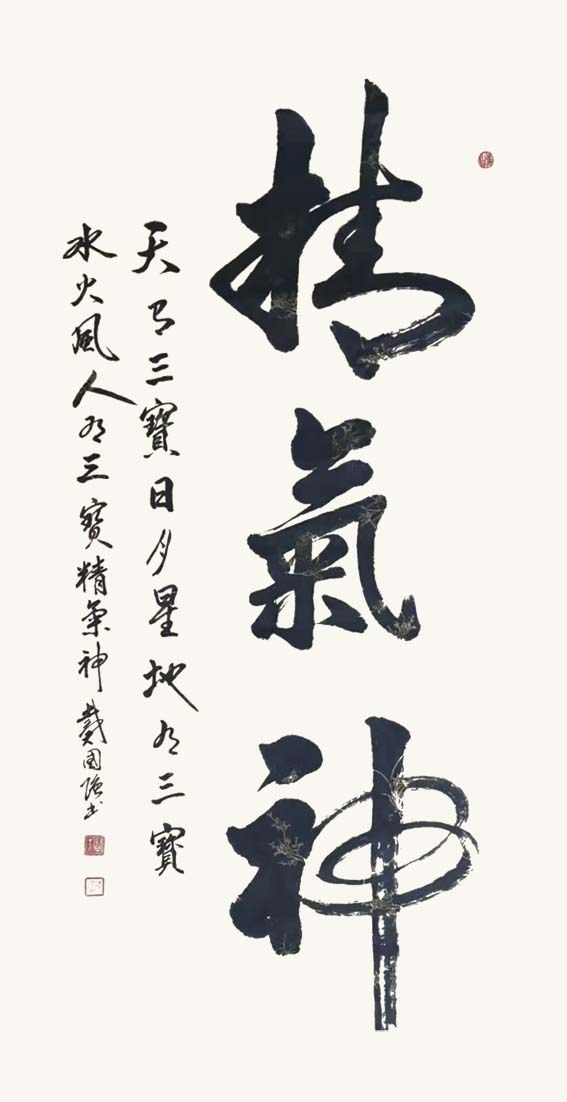 精氣神
天有三寶日月星地有三寶
水火風人有三寶精氣神戴國強書